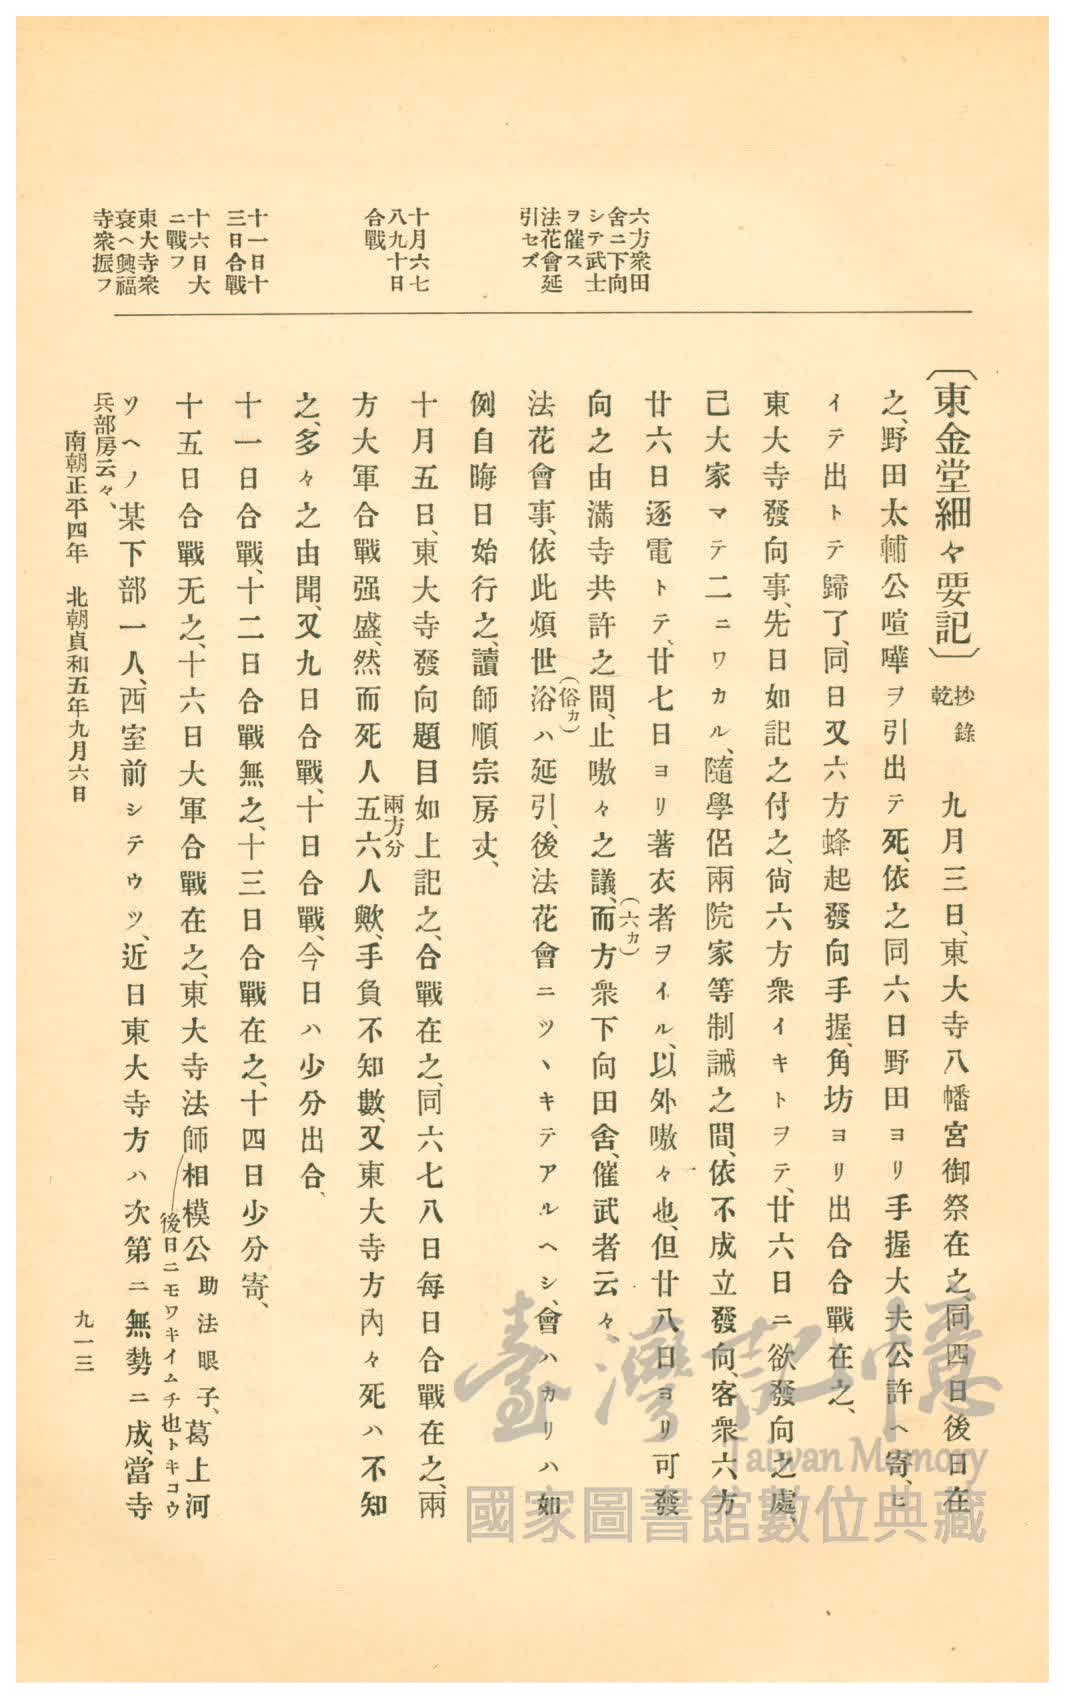 六方衆田
舍ニ下向
シテ武士
ヲ催ス
法花會延
引セズ
十月六七
八九十日
合戰
十一日十
三日合戰
十六日大
ニ戰フ
東大寺衆
衰ヘ興福
寺衆振フ
〔東金堂細々要記〕抄錄 乾 九月三日、東大寺八幡宮御祭在之、同四日後日在
之、野田太輔公喧嘩ヲ引出テ死、依之同六日野田ヨリ手握大夫公許ヘ寄、ヒ
イテ出トテ歸了、同日又六方蜂起發向手握、角坊ヨリ出合合戰在之、
東大寺發向事、先日如記之付之、尙六方衆イキトヲテ、廿六日ニ欲發向之處、
己大家マテ二ニワカル、隨學侶兩院家等制誡之間、依不成立發向、客衆六方
廿六日逐電トテ、廿七日ヨリ著衣者ヲイル、以外嗷々也、但廿八日ヨリ可發
向之由滿寺共許之間、止嗷々之議、而(六カ)方衆下向田舍、催武者云々、
法花會事、依此煩世浴(俗カ)ハ延引、後法花會ニツヽキテアルヘシ、會ハカリハ如
例自晦日始行之、讀師順宗房丈、
十月五日、東大寺發向題目如上記之、合戰在之、同六七八日每日合戰在之、兩
方大軍合戰强盛、然而死人五六人兩方分歟、手負不知數、又東大寺方內々死ハ不知
之、多々之由聞、又九日合戰、十日合戰、今日ハ少分出合、
十一日合戰、十二日合戰無之、十三日合戰在之、十四日少分寄、
十五日合戰无之、十六日大軍合戰在之、東大寺法師相模公助法眼子、後日ニモワキイムチ也トキコウ葛上河
ソヘノ某下部一人、西室前シテウツ、近日東大寺方ハ次第ニ無勢ニ成、當寺
兵部房云々、
南朝正平四年 北朝貞和五年九月六日
九一三
臺灣記憶
Taiwan Memory
國家圖書館數位典藏